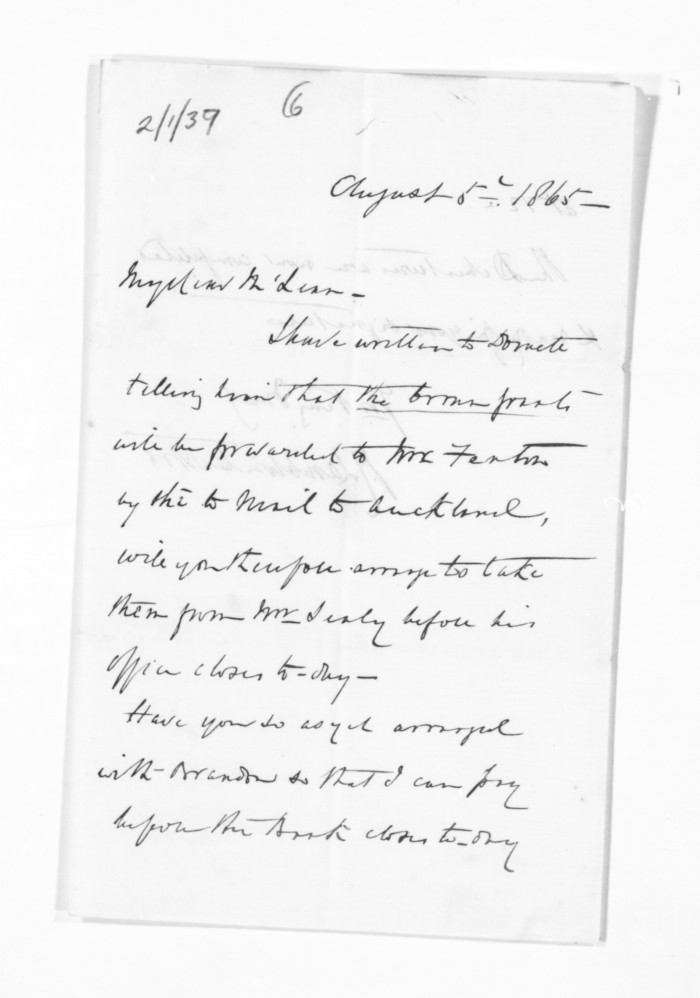 2/1/39
6
August 5th. 1865 -
My dear McLean -
I have written to Domett
telling him that the Crown grants
will be forwarded to Mr Fenton
by the to Mail to Auckland,
will you therefore arrange to take
them from Mr Sealy before his
office closes to-day -
Have you so as yet arranged
with Brandon so that I can pay
before the Bank closes to-day